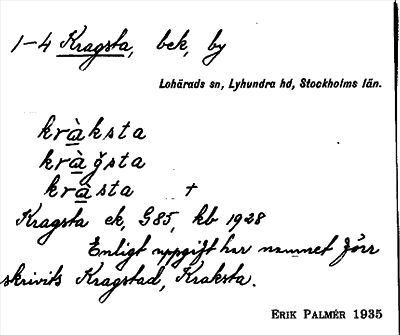 1-4 Kragsta, bek, by
Lohärads sn, Lyhundra hd, Stockholms län.
kràksta
kràǧsta
kràsta +
Kragsta ek, G85, kb 1928
Enligt uppgift har namnet förr
skrivits Kragstad, Kraksta.
ERIK PALMÉR 1935